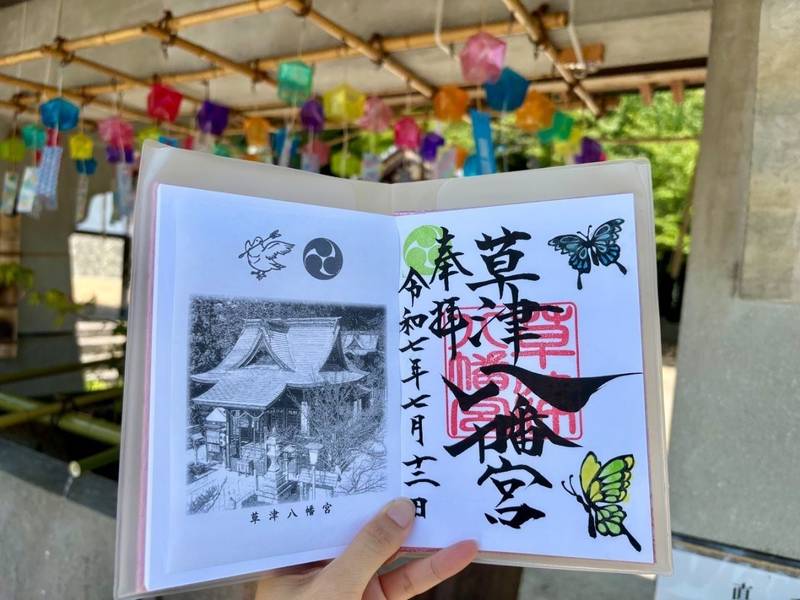 草津八幡宮
奉拝
草津八幡宮
令和七年七月十二日
草津
八幡宮
直